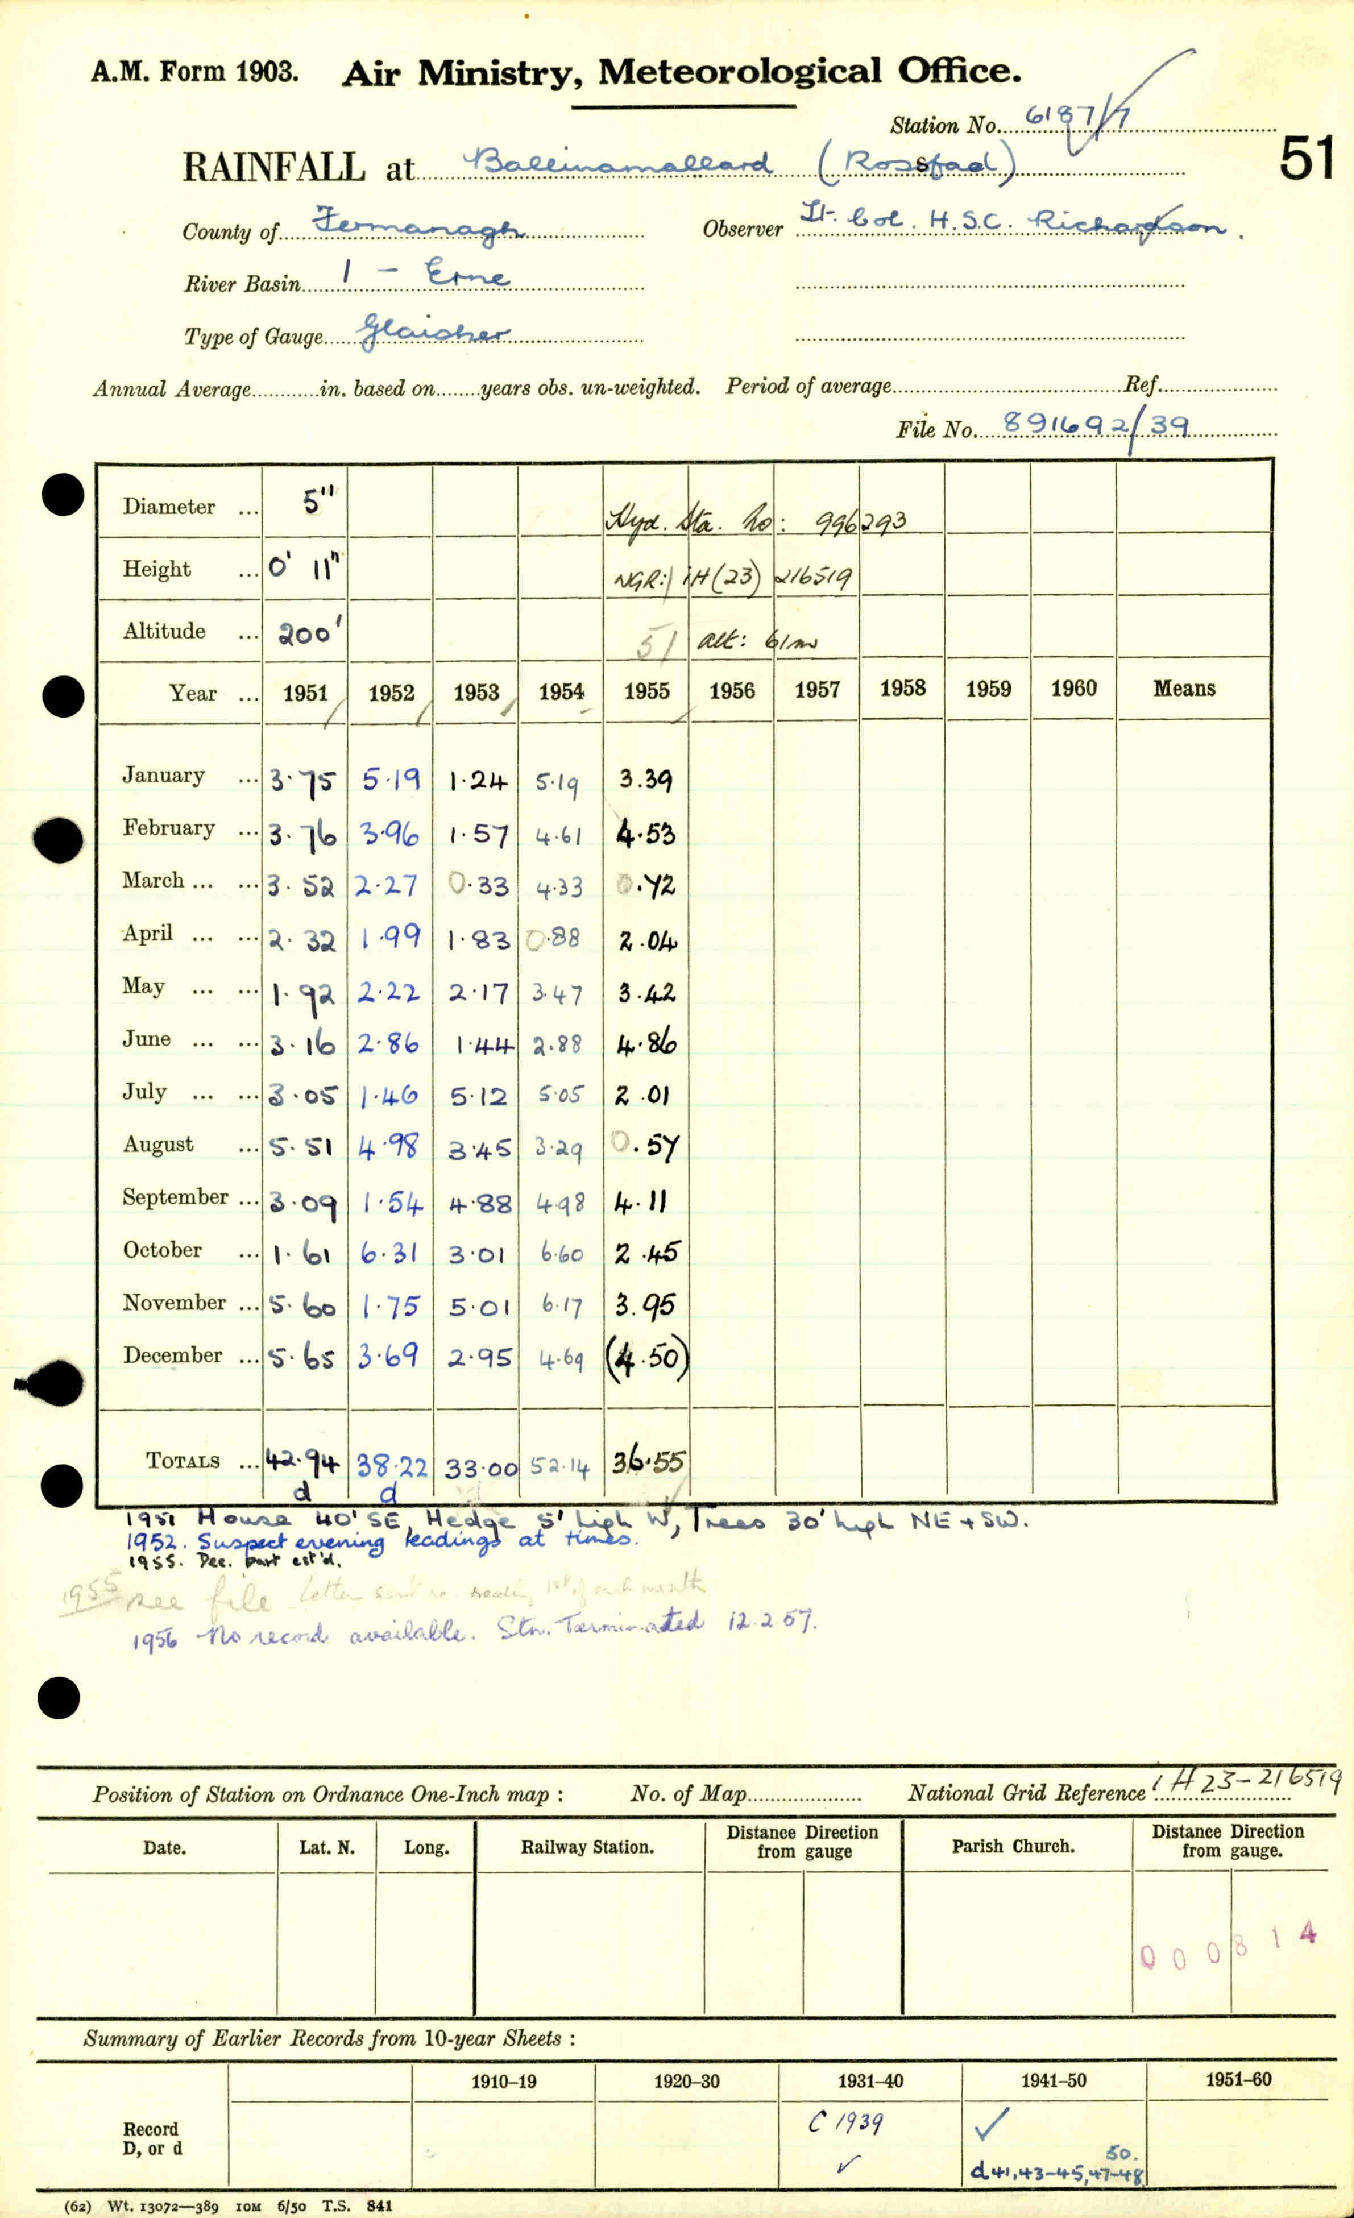 A.M. Form 1903. Air Ministry, Meteorological Office.
Station No. 6187/7
51
RAINFALL at Ballinamallard (Rossfad)
County of Fermanagh Observer Lt. Col. H.S.C. Richardson.
River Basin 1 - Erne
Type of Gauge Glaisher
Annual Average............in. based on........years obs. un-weighted. Period of average............ Ref............
File No. 891692/39
Diameter ... 5" Hyd. Sta. No: 996293
Height ... 0' 11" NGR: IH(23) 216519
Altitude ... 200' 51 alt: 61m
Year ... 1951 1952 1953 1954 1955 1956 1957 1958 1959 1960 Means
January ... 3.75 5.19 1.24 5.19 3.39
February ... 3.76 3.96 1.57 4.61 4.53
March ... ... 3.52 2.27 0.33 4.33 0.72
April ... ... 2.32 1.99 1.83 0.88 2.04
May ... ... 1.92 2.22 2.17 3.47 3.42
June ... ... 3.16 2.86 1.44 2.88 4.86
July ... ... 3.05 1.46 5.12 5.05 2.01
August ... 5.51 4.98 3.45 3.29 0.57
September ... 3.09 1.54 4.88 4.98 4.11
October ... 1.61 6.31 3.01 6.60 2.45
November ... 5.60 1.75 5.01 6.17 3.95
December ... 5.65 3.69 2.95 4.69 (4.50)
TOTALS ... 42.94 38.22 33.00 52.14 36.55
d d
1951 House 40' SE, Hedge 5' high W, Trees 30' high NE + SW.
1952. Suspect evening readings at times.
1955. Dec. part est'd.
1955 see file Letter sent re. reading 1st of each month
1956 No record available. Stn. Terminated 12.2.57.
Position of Station on Ordnance One-Inch map : No. of Map............ National Grid Reference IH 23-216519
Date. Lat. N. Long. Railway Station. Distance from Direction gauge Parish Church. Distance from Direction gauge.
000814
Summary of Earlier Records from 10-year Sheets :
1910–19 1920–30 1931–40 1941–50 1951–60
Record D, or d C 1939 ✓ ✓ 50. d 41,43-45,47-48
(62) Wt. 13072—389 10M 6/50 T.S. 841